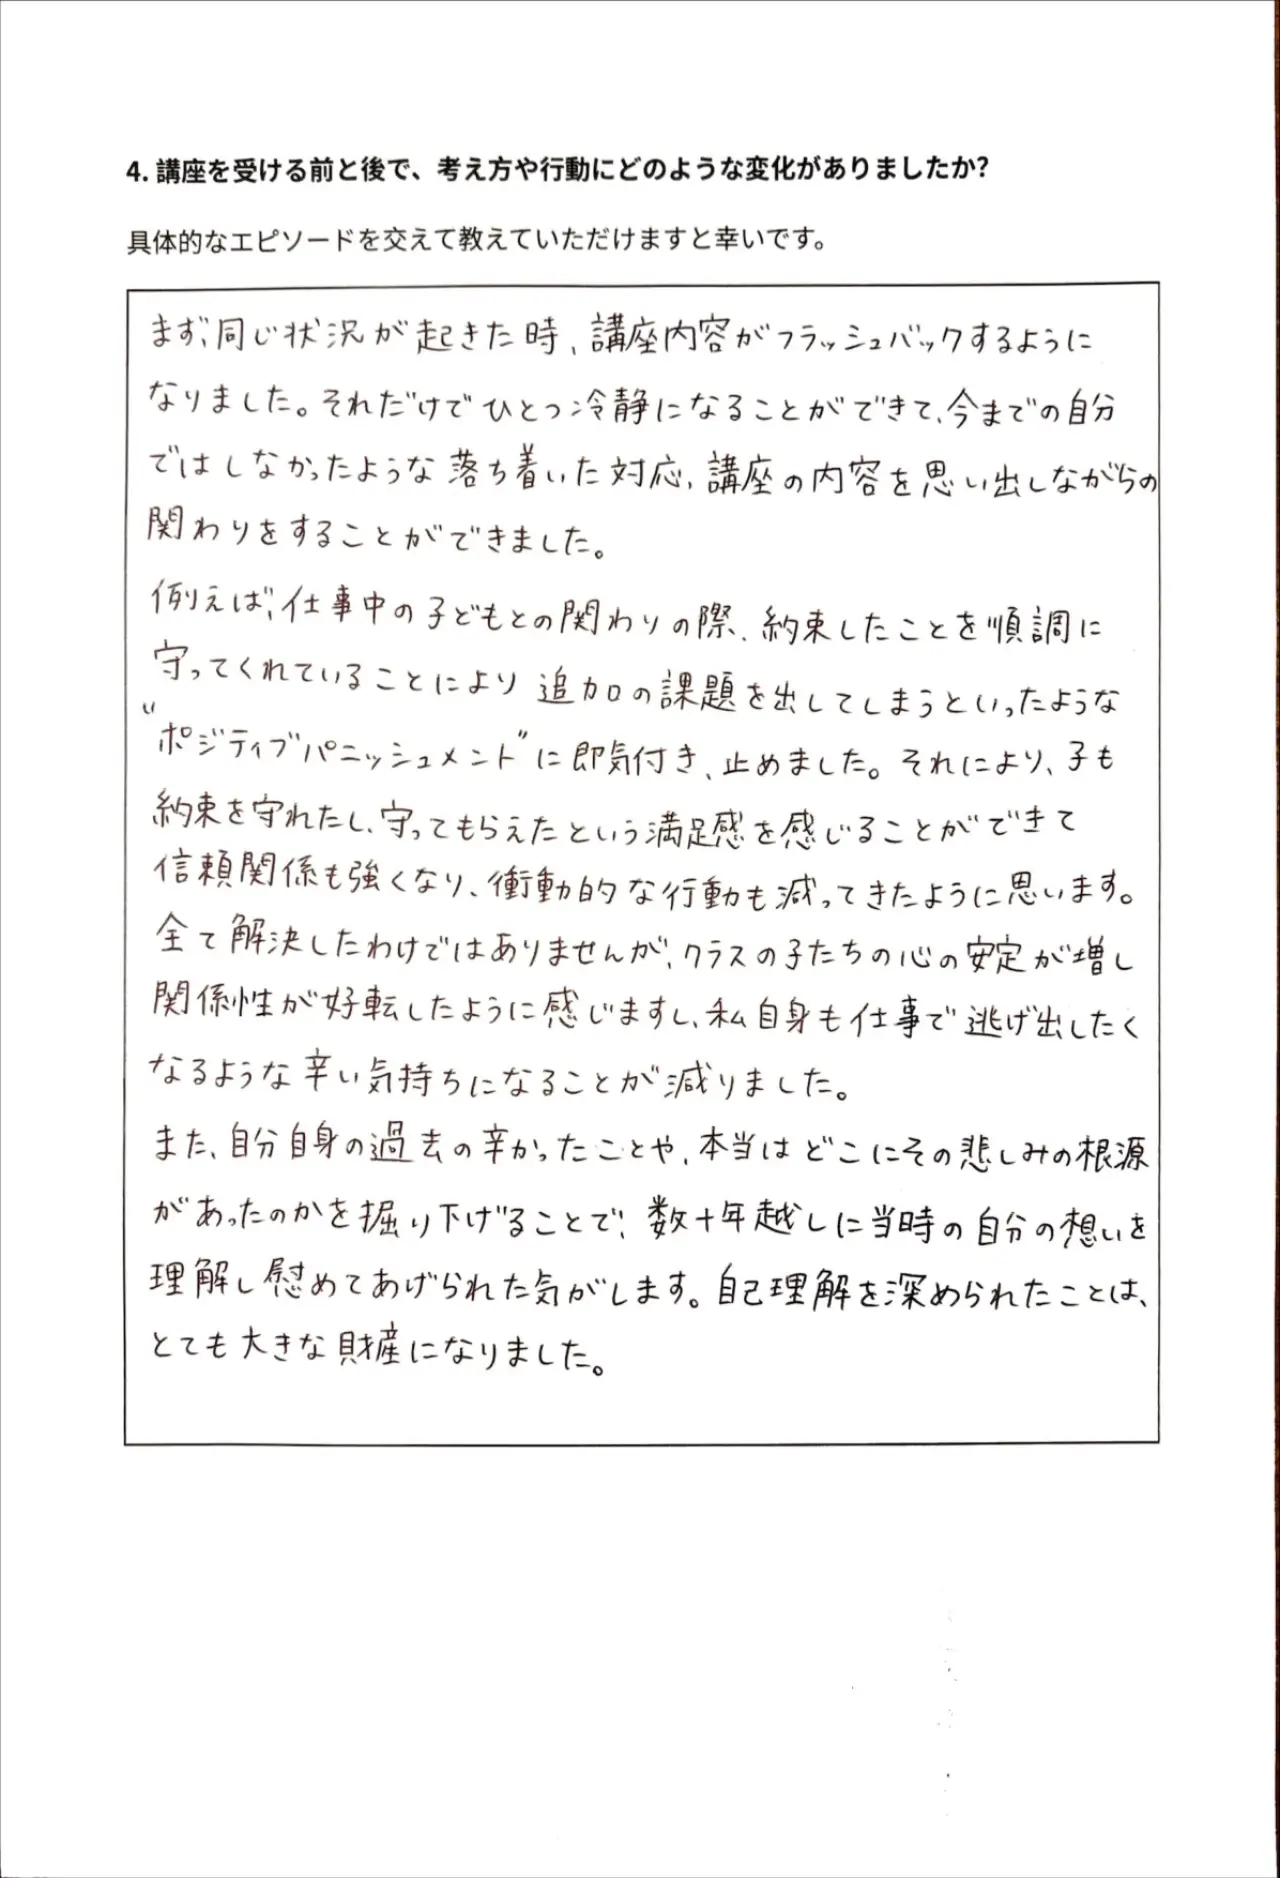 4. 講座を受ける前と後で、考え方や行動にどのような変化がありましたか?
具体的なエピソードを交えて教えていただけますと幸いです。
まず、同じ状況が起きた時、講座内容がフラッシュバックするように
なりました。それだけでひとつ冷静になることができて、今までの自分
ではしなかったような落ち着いた対応、講座の内容を思い出しながらの
関わりをすることができました。
例えば、仕事中の子どもとの関わりの際、約束したことを順調に
守ってくれていることにより追加の課題を出してしまうといったような
“ポジティブパニッシュメント”に即気付き、止めました。それにより、子も
約束を守れたし、守ってもらえたという満足感を感じることができて
信頼関係も強くなり、衝動的な行動も減ってきたように思います。
全て解決したわけではありませんが、クラスの子たちの心の安定が増し
関係性が好転したように感じますし、私自身も仕事で逃げ出したく
なるような辛い気持ちになることが減りました。
また、自分自身の過去の辛かったことや、本当はどこにその悲しみの根源
があったのかを掘り下げることで、数十年越しに当時の自分の想いを
理解し慰めてあげられた気がします。自己理解を深められたことは、
とても大きな財産になりました。